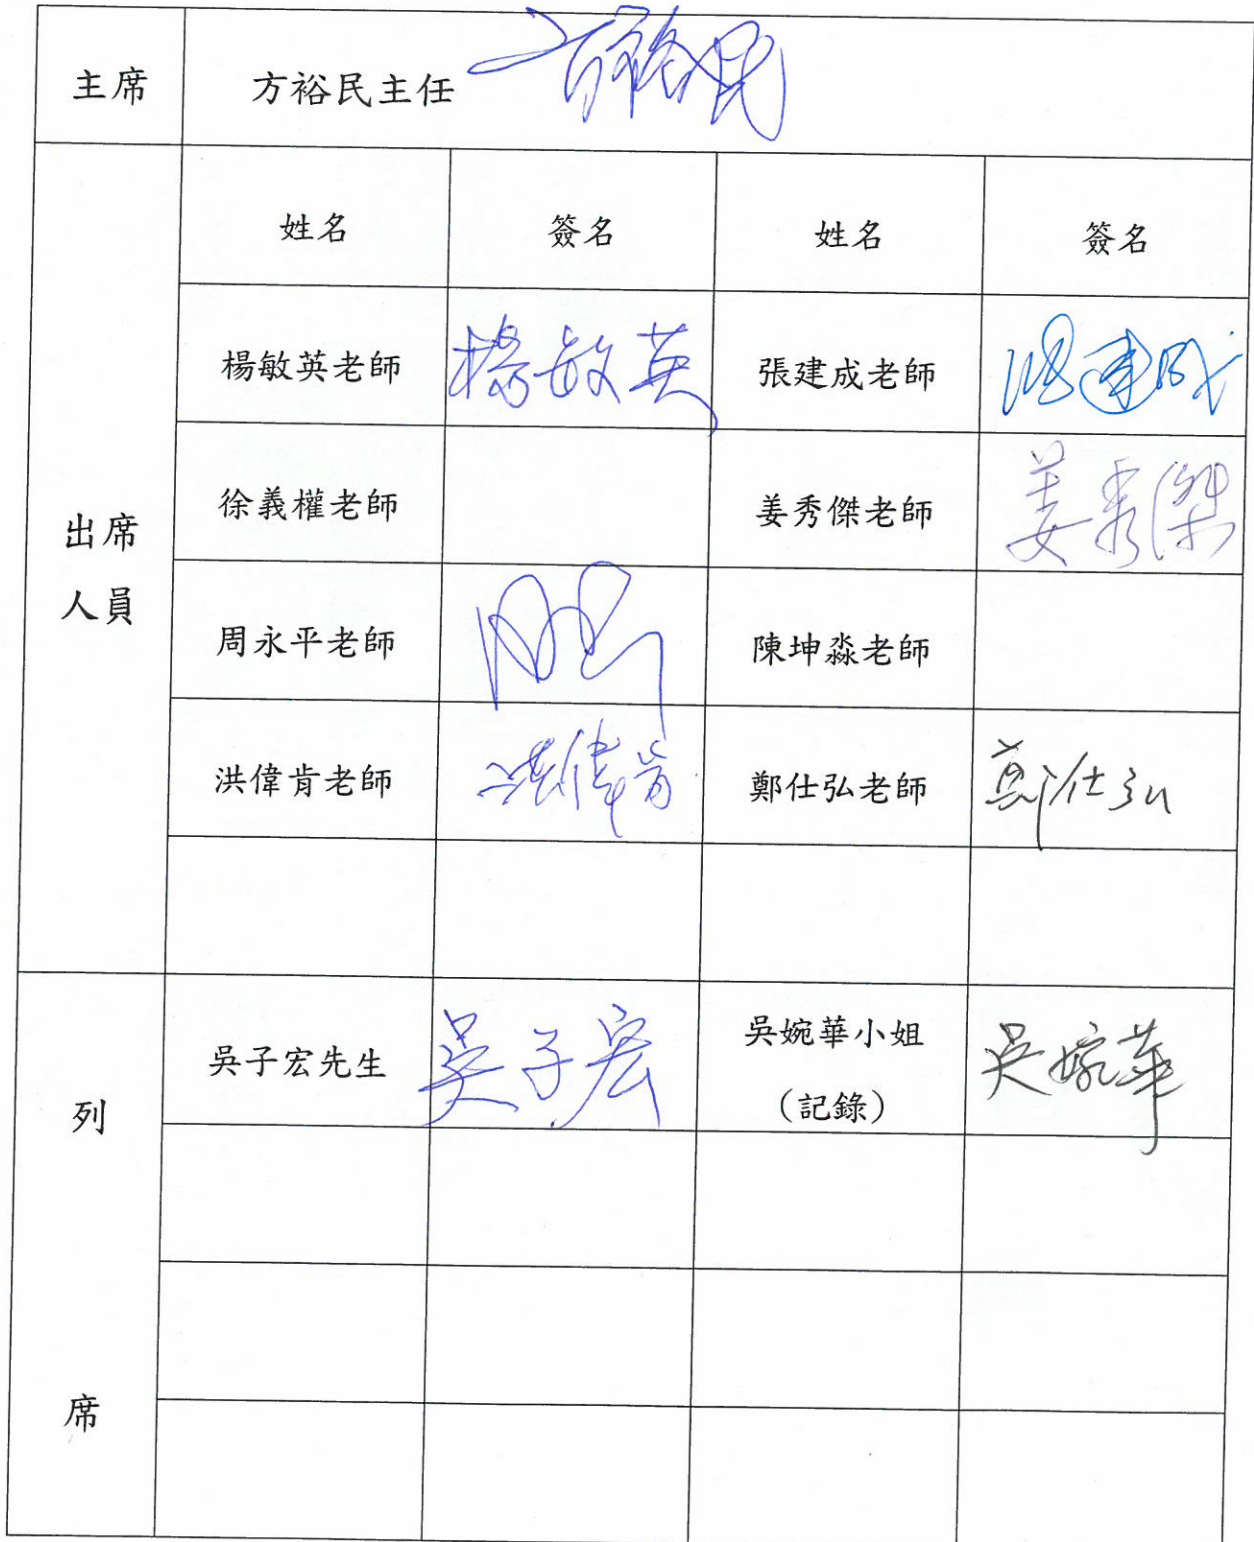 主席 方裕民主任 方裕民
姓名 簽名 姓名 簽名
楊敏英老師 楊敏英 張建成老師 張建成
出席
人員
徐義權老師 姜秀傑老師 姜秀傑
周永平老師 陳坤淼老師
洪偉肯老師 洪偉肯 鄭仕弘老師 鄭仕弘
列
席
吳子宏先生 吳子宏 吳婉華小姐 吳婉華
（記錄）